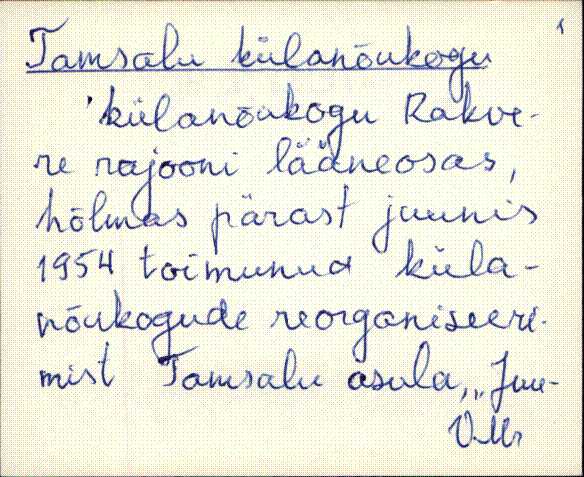 1
Tamsalu külanõukogu
külanõukogu Rakve-
re rajooni lääneosas,
hõlmas pärast juunis
1954 toimunud küla-
nõukogude reorganiseeri-
mist Tamsalu asula, „Juu-